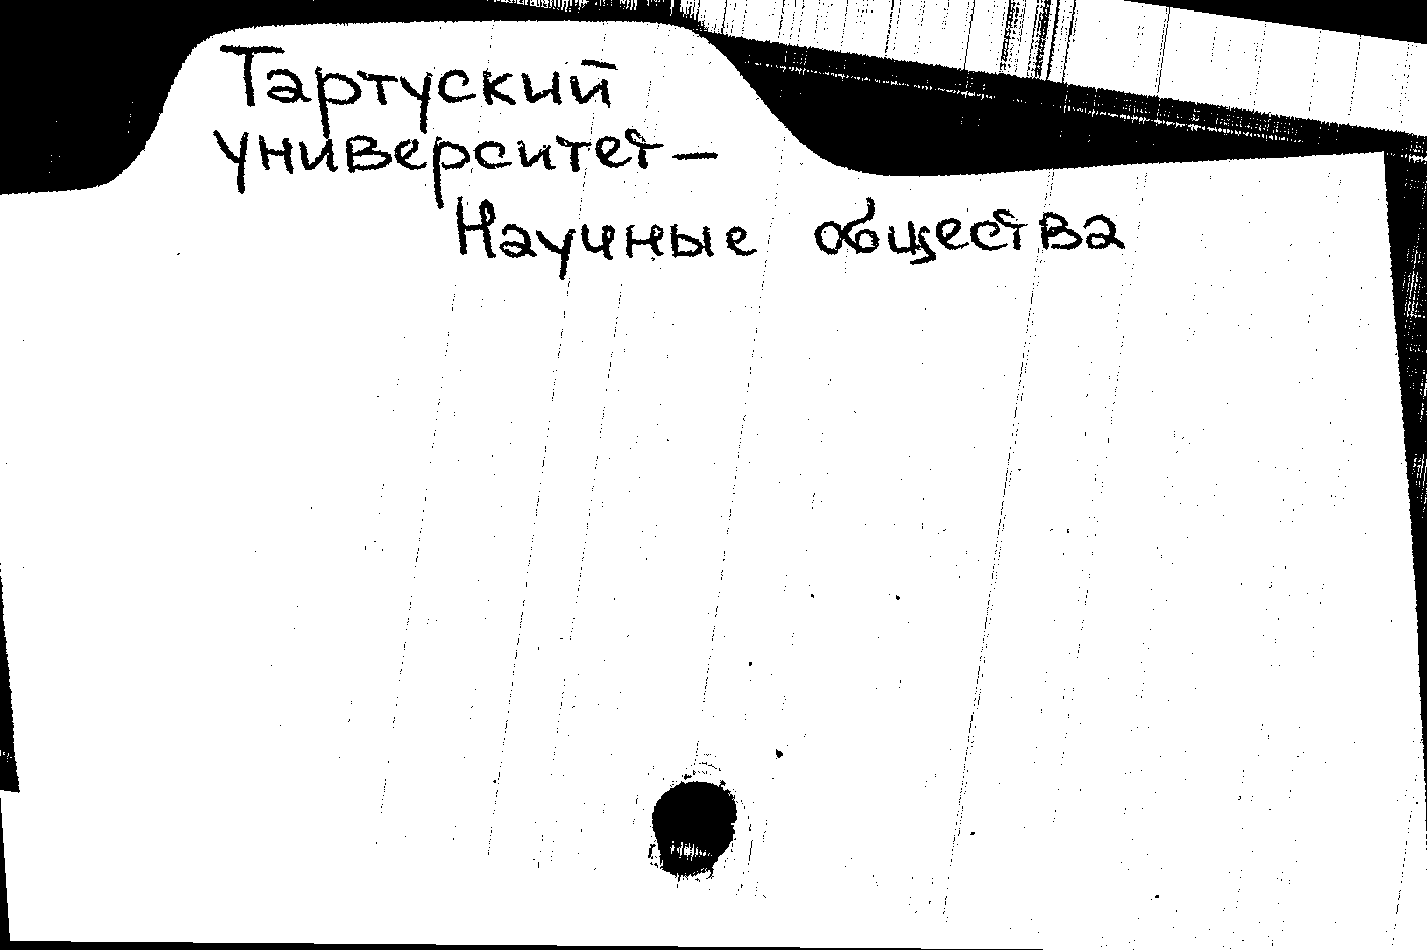 Тартуский
университет—
Научные общества